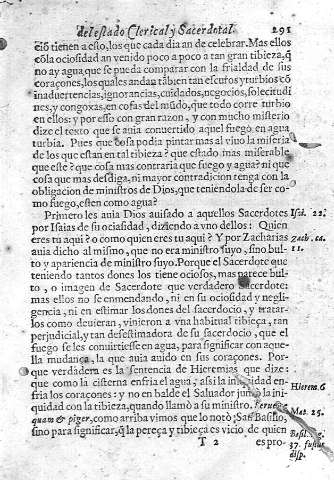 del estado Clerical y Sacerdotal. 291
ciõ tienen a esto, los que cada dia an de celebrar. Mas ellos
cõla ociosidad an venido poco a poco a tan gran tibieza, q̃
no ay agua, que se pueda comparar con la frialdad de sus
coraçones, los quales andan tãbien tan escuros y turbios cõ
inaduertencias, ignorancias, cuidados, negocios, solecitudi
nes, y congoxas, en cosas del mũdo, que todo corre turbio
en ellos: y por esso con gran razon, y con mucho misterio
dize el texto que se auia conuertido aquel fuego en agua
turbia. Pues que cosa podia pintar mas al viuo la miseria
de los que estan en tal tibieza? que estado mas miserable
que este? que cosa mas contraria que fuego y agua? ni que
cosa que mas desdiga, ni mayor contradicion tenga con la
obligacion de ministros de Dios, que teniendola de ser co-
mo fuego, esten como agua?
Primero les auia Dios auisado a aquellos Sacerdotes Isai. 22.
por Isaias de su ociasidad, diziendo a vno dellos: Quien
eres tu aqui? o como quien eres tu aqui? Y por Zacharias Zach. ca.
auia dicho al mismo, que no era ministro suyo, sino bul- 11.
to y apariencia de ministro suyo. Porque el Sacerdote que
teniendo tantos dones los tiene ociosos, mas parece bul-
to, o imagen de Sacerdote que verdadero Sacerdote:
mas ellos no se enmendando, ni en su ociosidad y negli-
gencia, ni en estimar los dones del sacerdocio, y tratar-
los como deuieran, vinieron a vna habitual tibieça, tan
perjudicial, y tan desestimadora de su sacerdocio, que el
fuego se les conuirtiesse en agua, para significar con aque-
lla mudança, la que auia auido en sus coraçones. Por-
que verdadera es la sentencia de Hieremias que dize:
que como la cisterna enfria el agua; assi la iniquidad en- Hierem. 6
fria los coraçones: y no en balde el Saluador juntò la ini-
quidad con la tibieza, quando llamò a su ministro. Serue Mat. 25.
quam & piger, como arriba vimos que lo notò San Basilio,
sino para significar, q̃ la pereça y tibieça es vicio de quien
T 2 es pro-
disp.